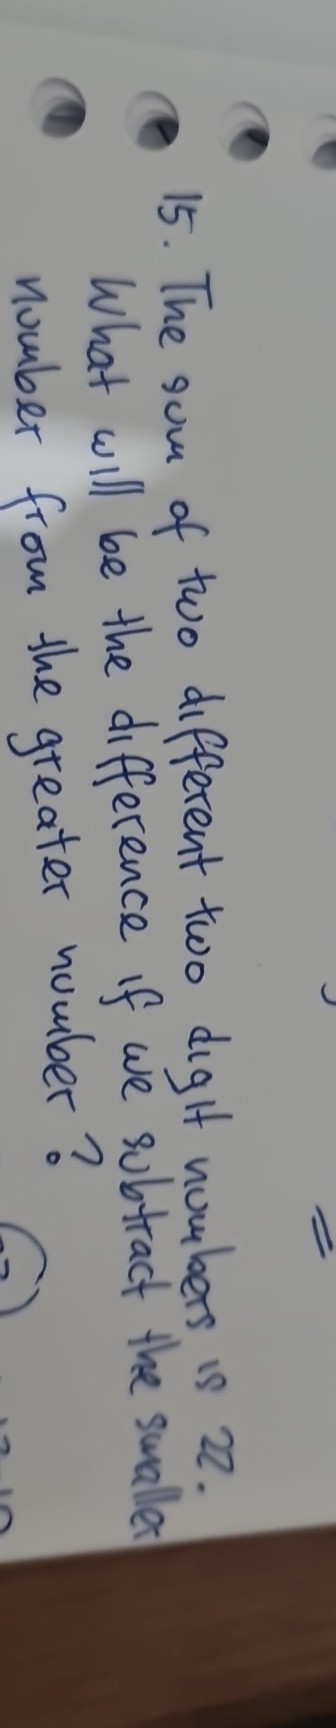 15. The sum of two different two digit numbers is 22.
What will be the difference if we subtract the smaller
number from the greater number?
=